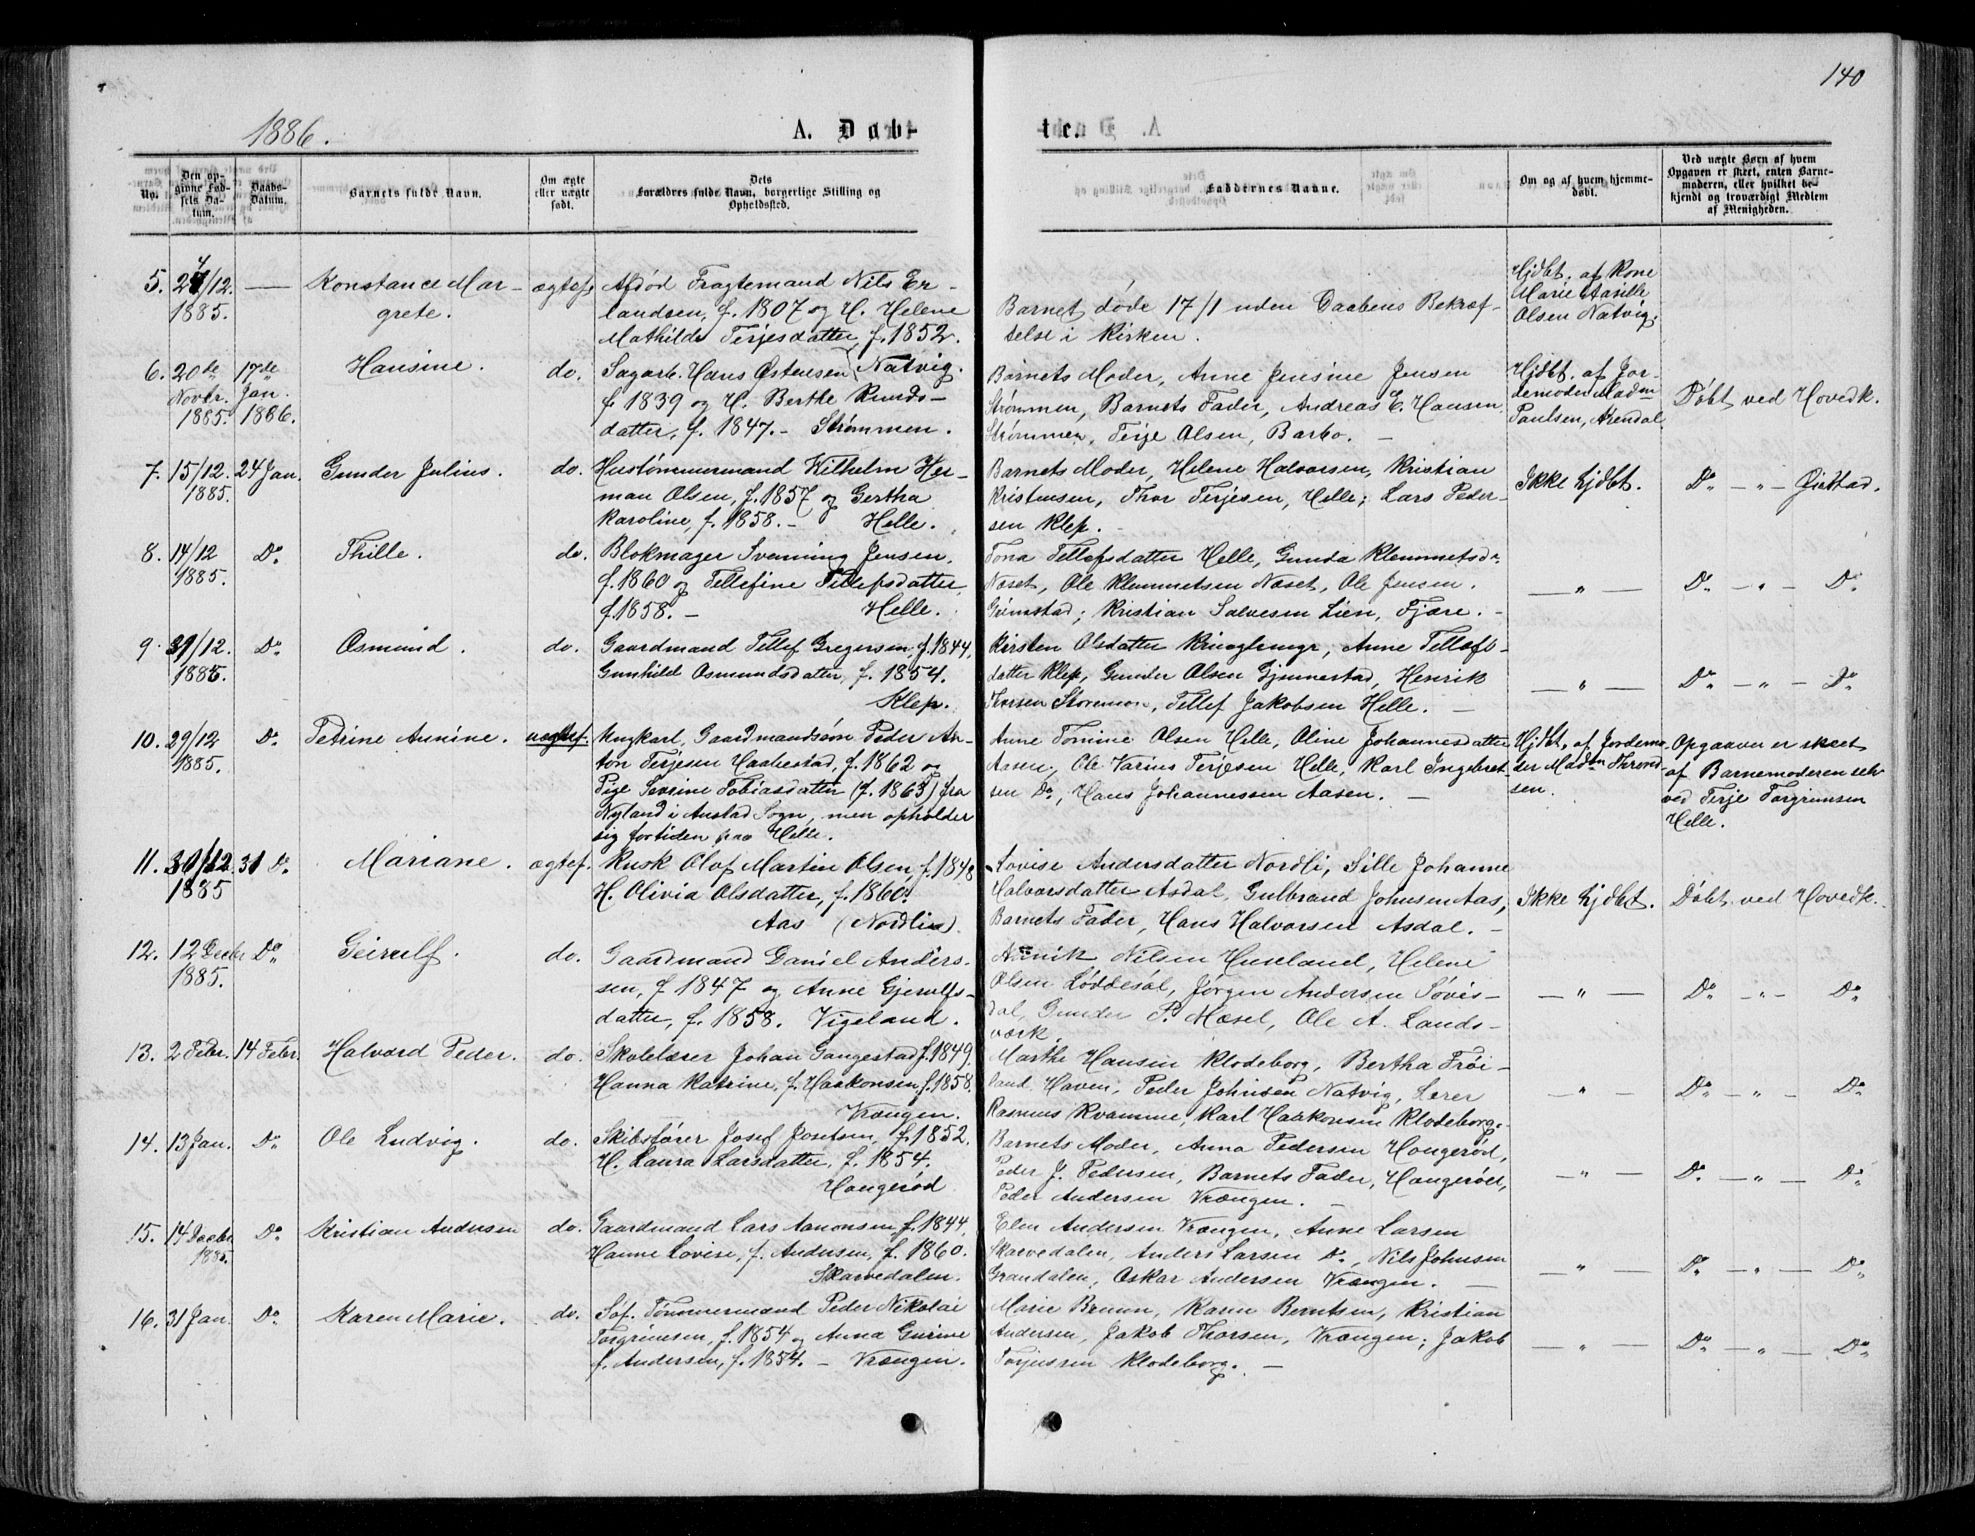 140
1886.
A. Døb-
te.
No.
Den op-
givne Fød-
sels Da-
tum.
Daabs-
Datum.
Barnets fulde Navn.
Om ægte
eller uægte
født.
Dets
Forældres fulde Navn, borgerlige Stilling og
Opholdssted.
Faddernes Navne.
Om og af hvem hjemme-
døbt.
Ved uægte Børn af hvem
Opgaven er skeet, enten Barne-
moderen, eller hvilket be-
kjendt og troværdigt Medlem
af Menigheden.
5. 24/12. — Konstance Mar- ægtef. Afdød Fragtemand Nils Er-
1885. grete. landsen, f. 1807 og H. Helene
Mathilde Terjesdatter, f. 1852.
Natvig.
Barnet døde 17/1 uden Daabens Bekræf-
telse i Kirken.
Hjdbt. af Kone
Marie Aasille
Olsen Natvig.
6. 20de 17de Hansine. do. Sagarb. Hans Østensen
Novbr. Jan. f. 1839 og H. Berthe Knuds-
1885. 1886. datter, f. 1847. - Strømmen.
Barnets Moder, Anne Jensine Jensen
Strømmen, Barnets Fader, Andreas C. Hansen,
Strømmen, Terje Olsen, Barbo. —
Hjdbt. af Jor-
demoder Madm
Paulsen, Arendal
Døbt ved Hovedk.
7. 15/12. 24 Jan. Gunder Julius. do. Hustømmermand Wilhelm Her-
1885. man Olsen, f. 1857 og Gertha
Karoline, f. 1858. - Helle.
Barnets Moder, Helene Halvorsen, Kristian
Kristensen, Thor Terjesen, Helle; Lars Peder-
sen Klep. -
Ikke hjdbt. Do - " - Øiestad.
8. 14/12 Do Thille. do. Blokmager Svenning Jensen,
1885. f. 1860 og Tellefine Tellefsdatter,
f. 1858. - Helle.
Tona Tellefsdatter Helle, Gunda Klemmetsdr
Næset, Ole Klemmetsen Næset, Ole Jensen.
Grimstad; Kristian Salvesen Lien, Fjære. -
— " — Do - " - Do
9. 31/12. Do Osmund. do. Gaardmand Tellef Gregersen, f. 1844,
1885. Gunhild Osmundsdatter, f. 1854.
Klep.
Kirsten Olsdatter Kringlemyr, Anne Tellefs-
datter Klep, Gunder Olsen Gjennestad, Henrik
Thorsen Storemoen, Tellef Jakobsen Helle. —
— " — Do - " - Do
10. 29/12 Do Petrine Annine. uægtef. Ungkarl, Gaardmandssøn Peder An-
1885. ton Terjesen Haabestad, f. 1862 og
Pige Serine Tobiasdatter (f. 1863) fra
Nyland i Austad Sogn, men opholder
sig fortiden paa Helle.
Anne Tomine Olsen Helle, Oline Johannesdatter
Aasen, Ole Varius Terjesen Helle, Karl Ingebret-
sen Do, Hans Johannessen Aasen. —
Hjdbt. af Jordemo-
der Madm Thrond-
sen.
Opgaaven er skeet
af Barnemoderen selv
ved Terje Torgrimsen
Helle.
11. 30/12. 31 Do Mariane. ægtef. Kusk Olaf Martin Olsen, f. 1848
1885 H. Olivia Olsdatter, f. 1860.
Aas (Nordlien).
Lovise Andersdatter Nordli, Sille Johanne
Halvorsdatter Asdal, Gulbrand Johnsen Aas,
Barnets Fader, Hans Halvorsen Asdal. -
Ikke hjdbt. Døbt ved Hovedk.
12. 12 Decbr Do Geirulf. do. Gaardmand Daniel Anders-
1885. sen, f. 1847 og Anne Gjerulfs-
datter, f. 1858. Vigeland.
Nilsen Huseland, Helene
Olsen Løddesøl, Jørgen Andersen Løvis-
dal, Gunder P. Mæsel, Ole A. Lands-
værk.
— " — Do - " - Do
13. 2 Febr. 14 Febr. Halvard Peder. do. Skolelærer Johan Gangestad f. 1849
Hanna Katrine, f. Haakonsen f. 1858.
Vrængen.
Marthe Hansen Klodeborg, Bertha Frøi-
land, Haven, Peder Johnsen Natvig, Lærer
Rasmus Kvamme, Karl Haakonsen Klodeborg.
— " — Do - " - Do
14. 13 Jan. Do Ole Ludvig. do. Skibsfører Josef Josefsen, f. 1852.
H. Laura Larsdatter, f. 1854.
Haugerød
Barnets Moder, Anna Pedersen Haugerød,
Peder J. Pedersen, Barnets Fader, Haugerød,
Peder Andersen Vrængen. —
— " — Do - " - Do
15. 14 Decbr Do Kristian Andersen do. Gaardmand Lars Aanonsen f. 1844,
1885. Hanne Lovise, f. Andersen, f. 1860.
Skarvedalen.
Elen Andersen Vrængen, Anne Larsen
Skarvedalen, Anders Larsen Do, Nils Johnsen
Grandalen, Oskar Andersen Vrængen. —
— " — Do - " - Do
16. 31 Jan. Do Karen Marie. do. Søf. Tømmermand Peder Nikolai
Torgrimsen, f. 1854 og Anna Gurine
f. Andersen, f. 1854. - Vrængen.
Marie Bruun, Karen Berntsen, Kristian
Andersen, Jakob Thorsen, Vrængen; Jakob
Torjussen Klodeborg. —
— " — Do - " - Do